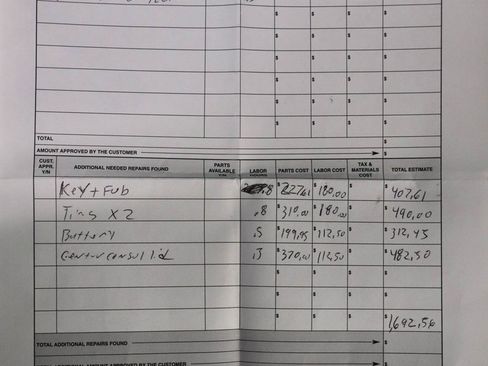 TOTAL
AMOUNT APPROVED BY THE CUSTOMER
CUST. APPR. Y/N ADDITIONAL NEEDED REPAIRS FOUND PARTS AVAILABLE Y/N LABOR PARTS COST LABOR COST TAX & MATERIALS COST TOTAL ESTIMATE
Key + Fub .8 $227.61 $180.00 $ $407.61
Tirs X2 .8 $310.00 $180.00 $ $490.00
Battery .5 $199.95 $112.50 $ $312.45
Center consul lid .5 $370.00 $112.50 $ $482.50
$1,692.56
TOTAL ADDITIONAL REPAIRS FOUND $
TOTAL ADDITIONAL AMOUNT APPROVED BY THE CUSTOMER $